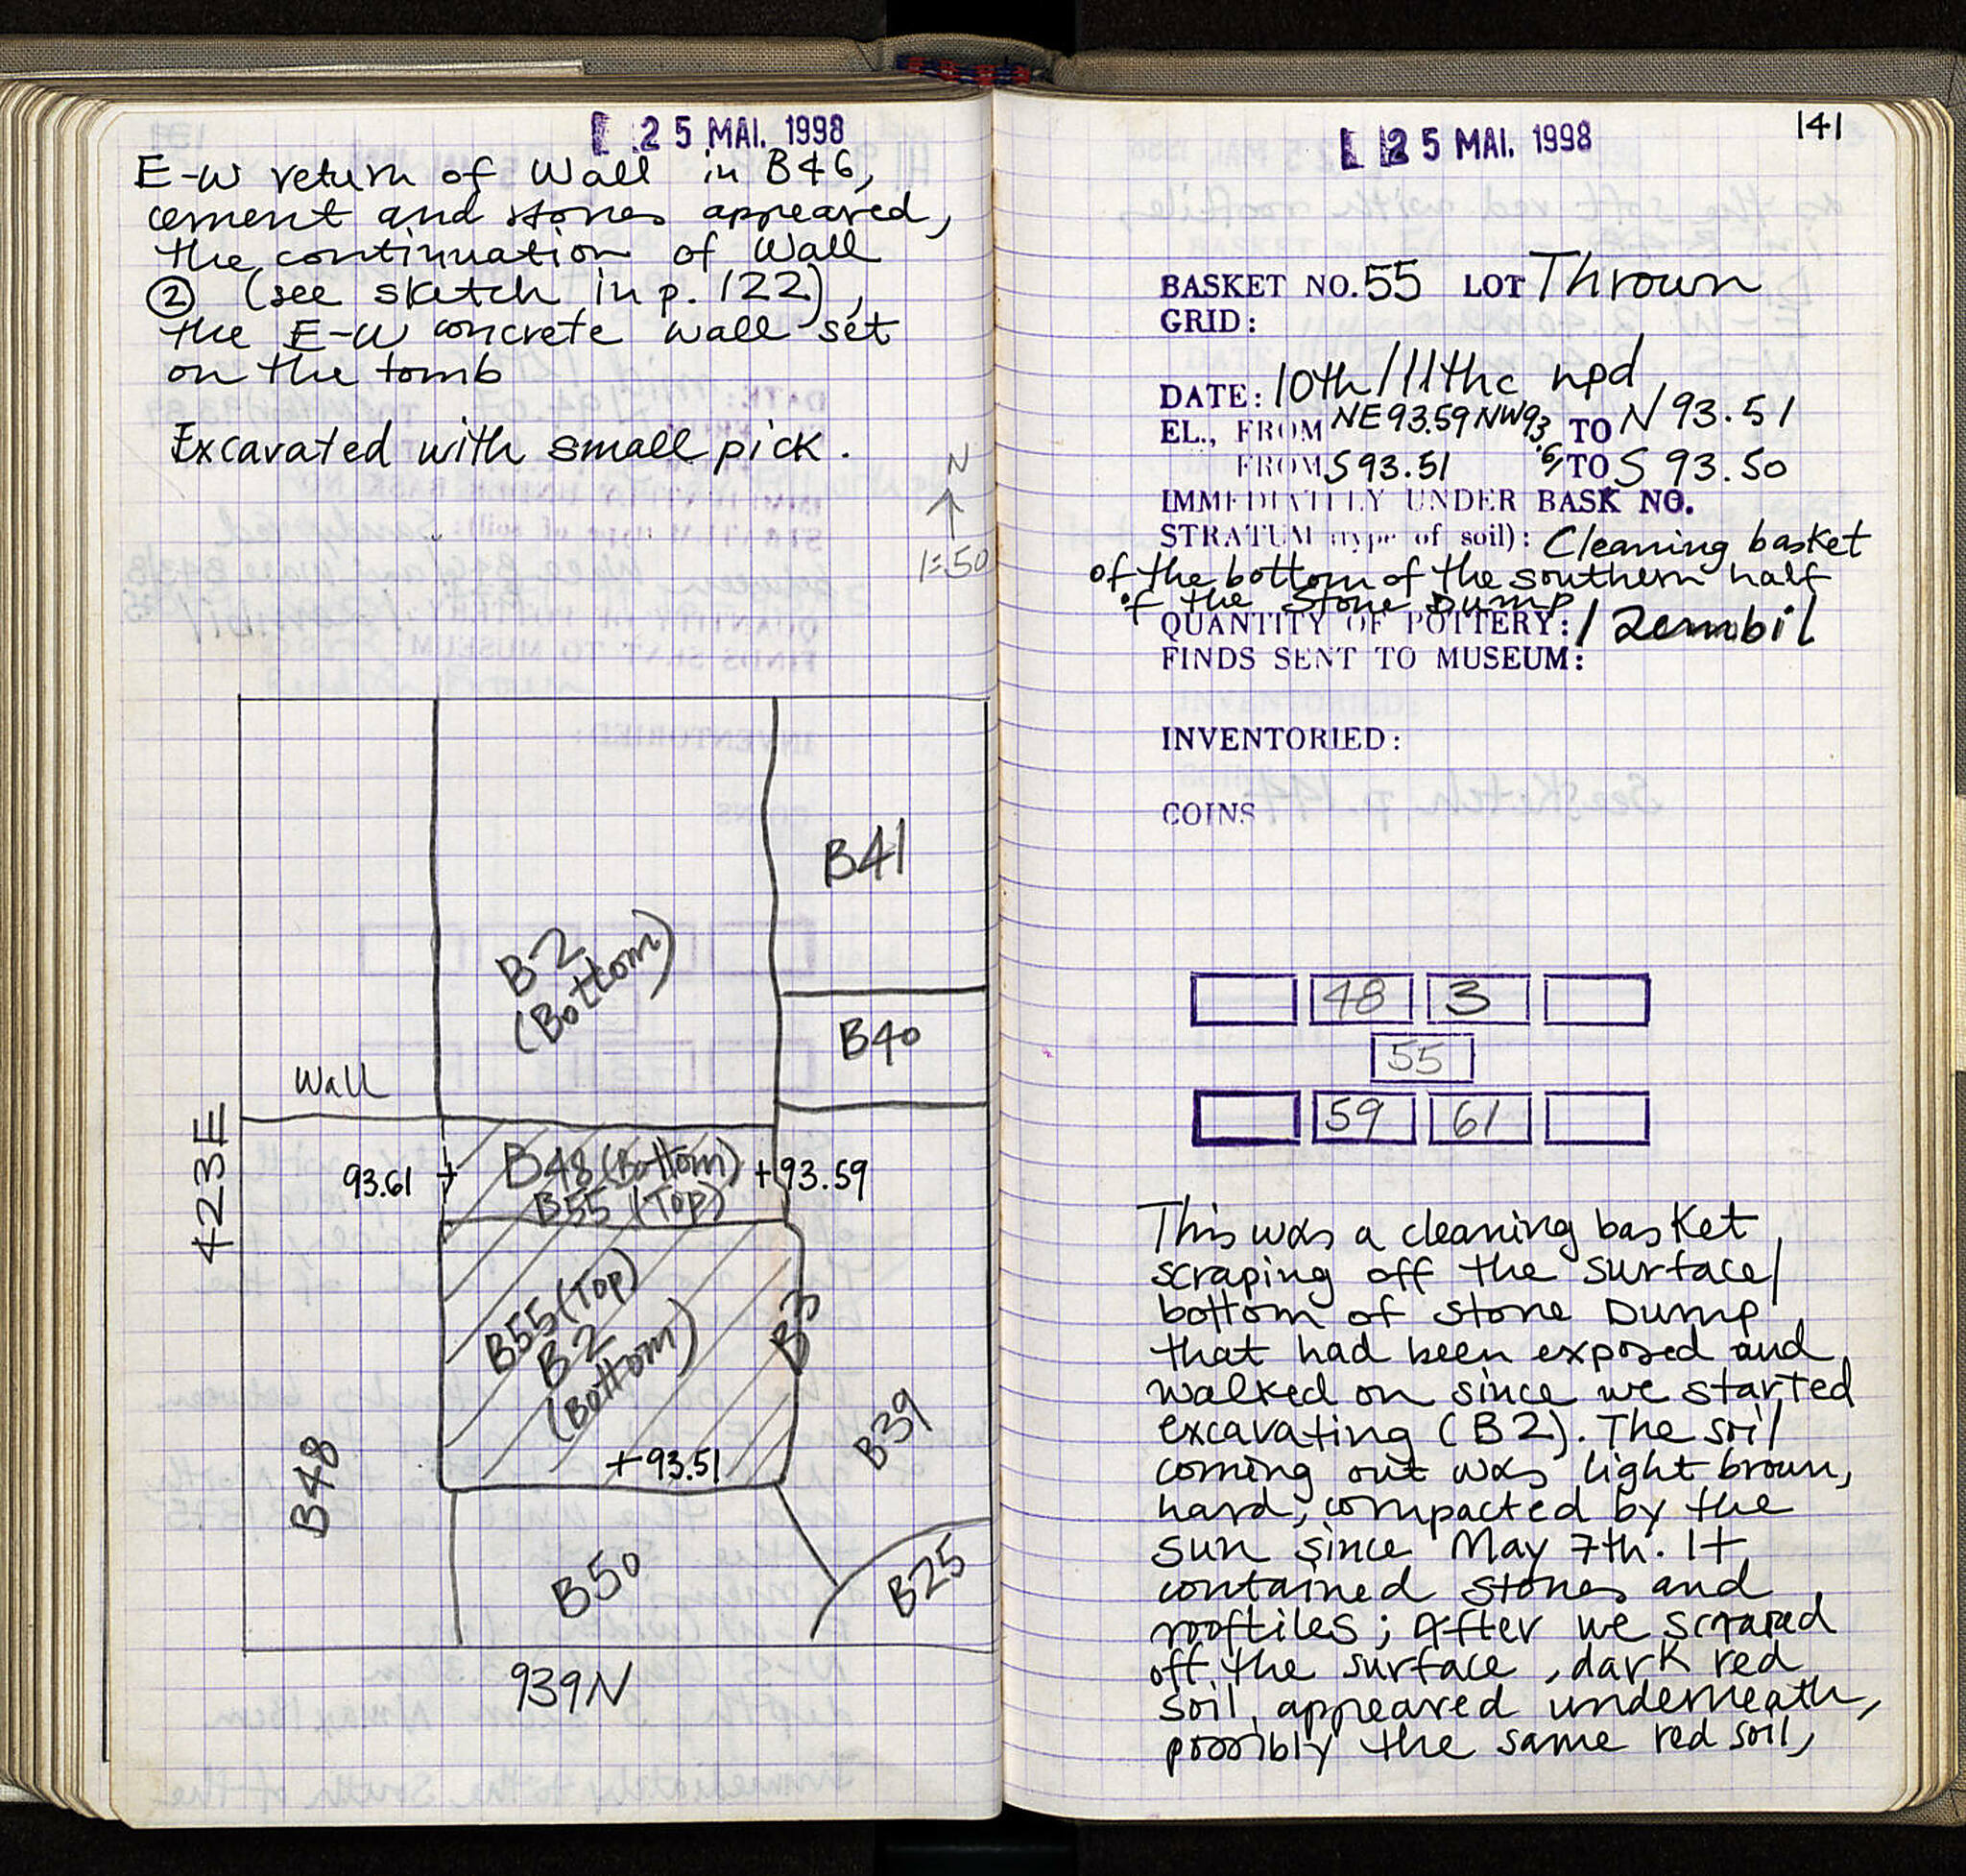 25 MAI. 1998
E-W return of Wall in B46,
cement and stones appeared,
the continuation of Wall
② (see sketch in p. 122),
the E-W concrete wall set
on the tomb
Excavated with small pick.
N
1:50
B41
B2
(Bottom)
B40
Wall
423E
93.61 +
B48 (Bottom)
+93.59
B55 (Top)
B55 (Top)
B2
(Bottom)
B3
+93.51
B39
B48
B50
B25
939N
25 MAI. 1998
141
BASKET NO. 55 LOT Thrown
GRID:
DATE: 10th/11thc npd
EL., FROM NE 93.59 NW 93.61 TO N 93.51
FROM S 93.51 TO S 93.50
IMMEDIATELY UNDER BASK NO.
STRATUM (type of soil): Cleaning basket
of the bottom of the southern half
of the Stone Dump
QUANTITY OF POTTERY: 1 Zembil
FINDS SENT TO MUSEUM:
INVENTORIED:
COINS
48 3
55
59 61
This was a cleaning basket,
scraping off the surface/
bottom of Stone Dump
that had been exposed and
walked on since we started
excavating (B2). The soil
coming out was light brown,
hard, compacted by the
sun since May 7th. It
contained stones and
rooftiles; After we scraped
off the surface, dark red
soil appeared underneath,
possibly the same red soil,